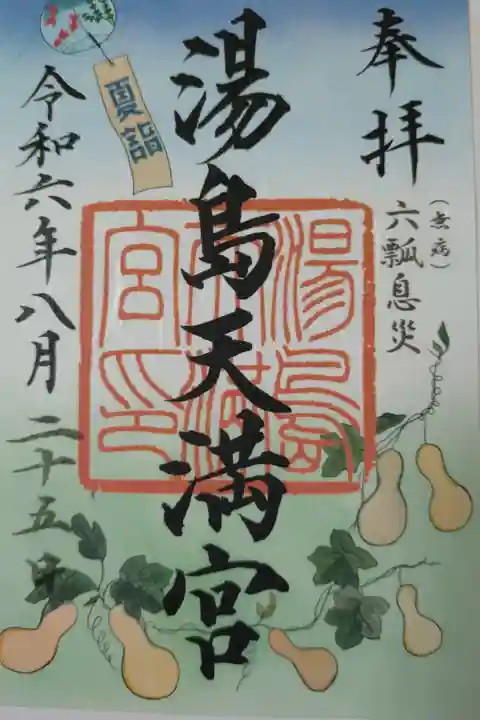 奉拝
(無病)
六瓢息災
湯島天満宮
湯島天満宮印
夏詣
令和六年八月二十五日